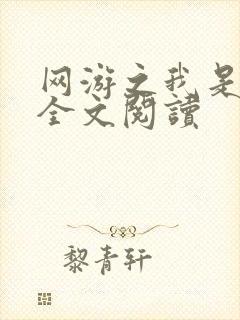 网游之我是
全文閱讀
黎青轩